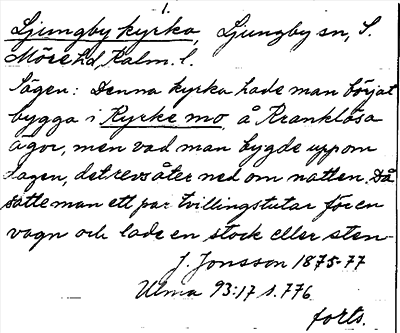 1.
Ljungby kyrka, Ljungby sn, S.
Möre hd, Kalm. l.
Sägen: Denna kyrka hade man börjat
bygga i Kyrke mo, å Kranklösa
ägor, men vad man bygde upp om
dagen, det revs åter ned om natten. Då
satte man ett par tvillingstutar för en
vagn och lade en stock eller sten
J. Jonsson 1875-77
Ulma 93:17 s. 776
forts.